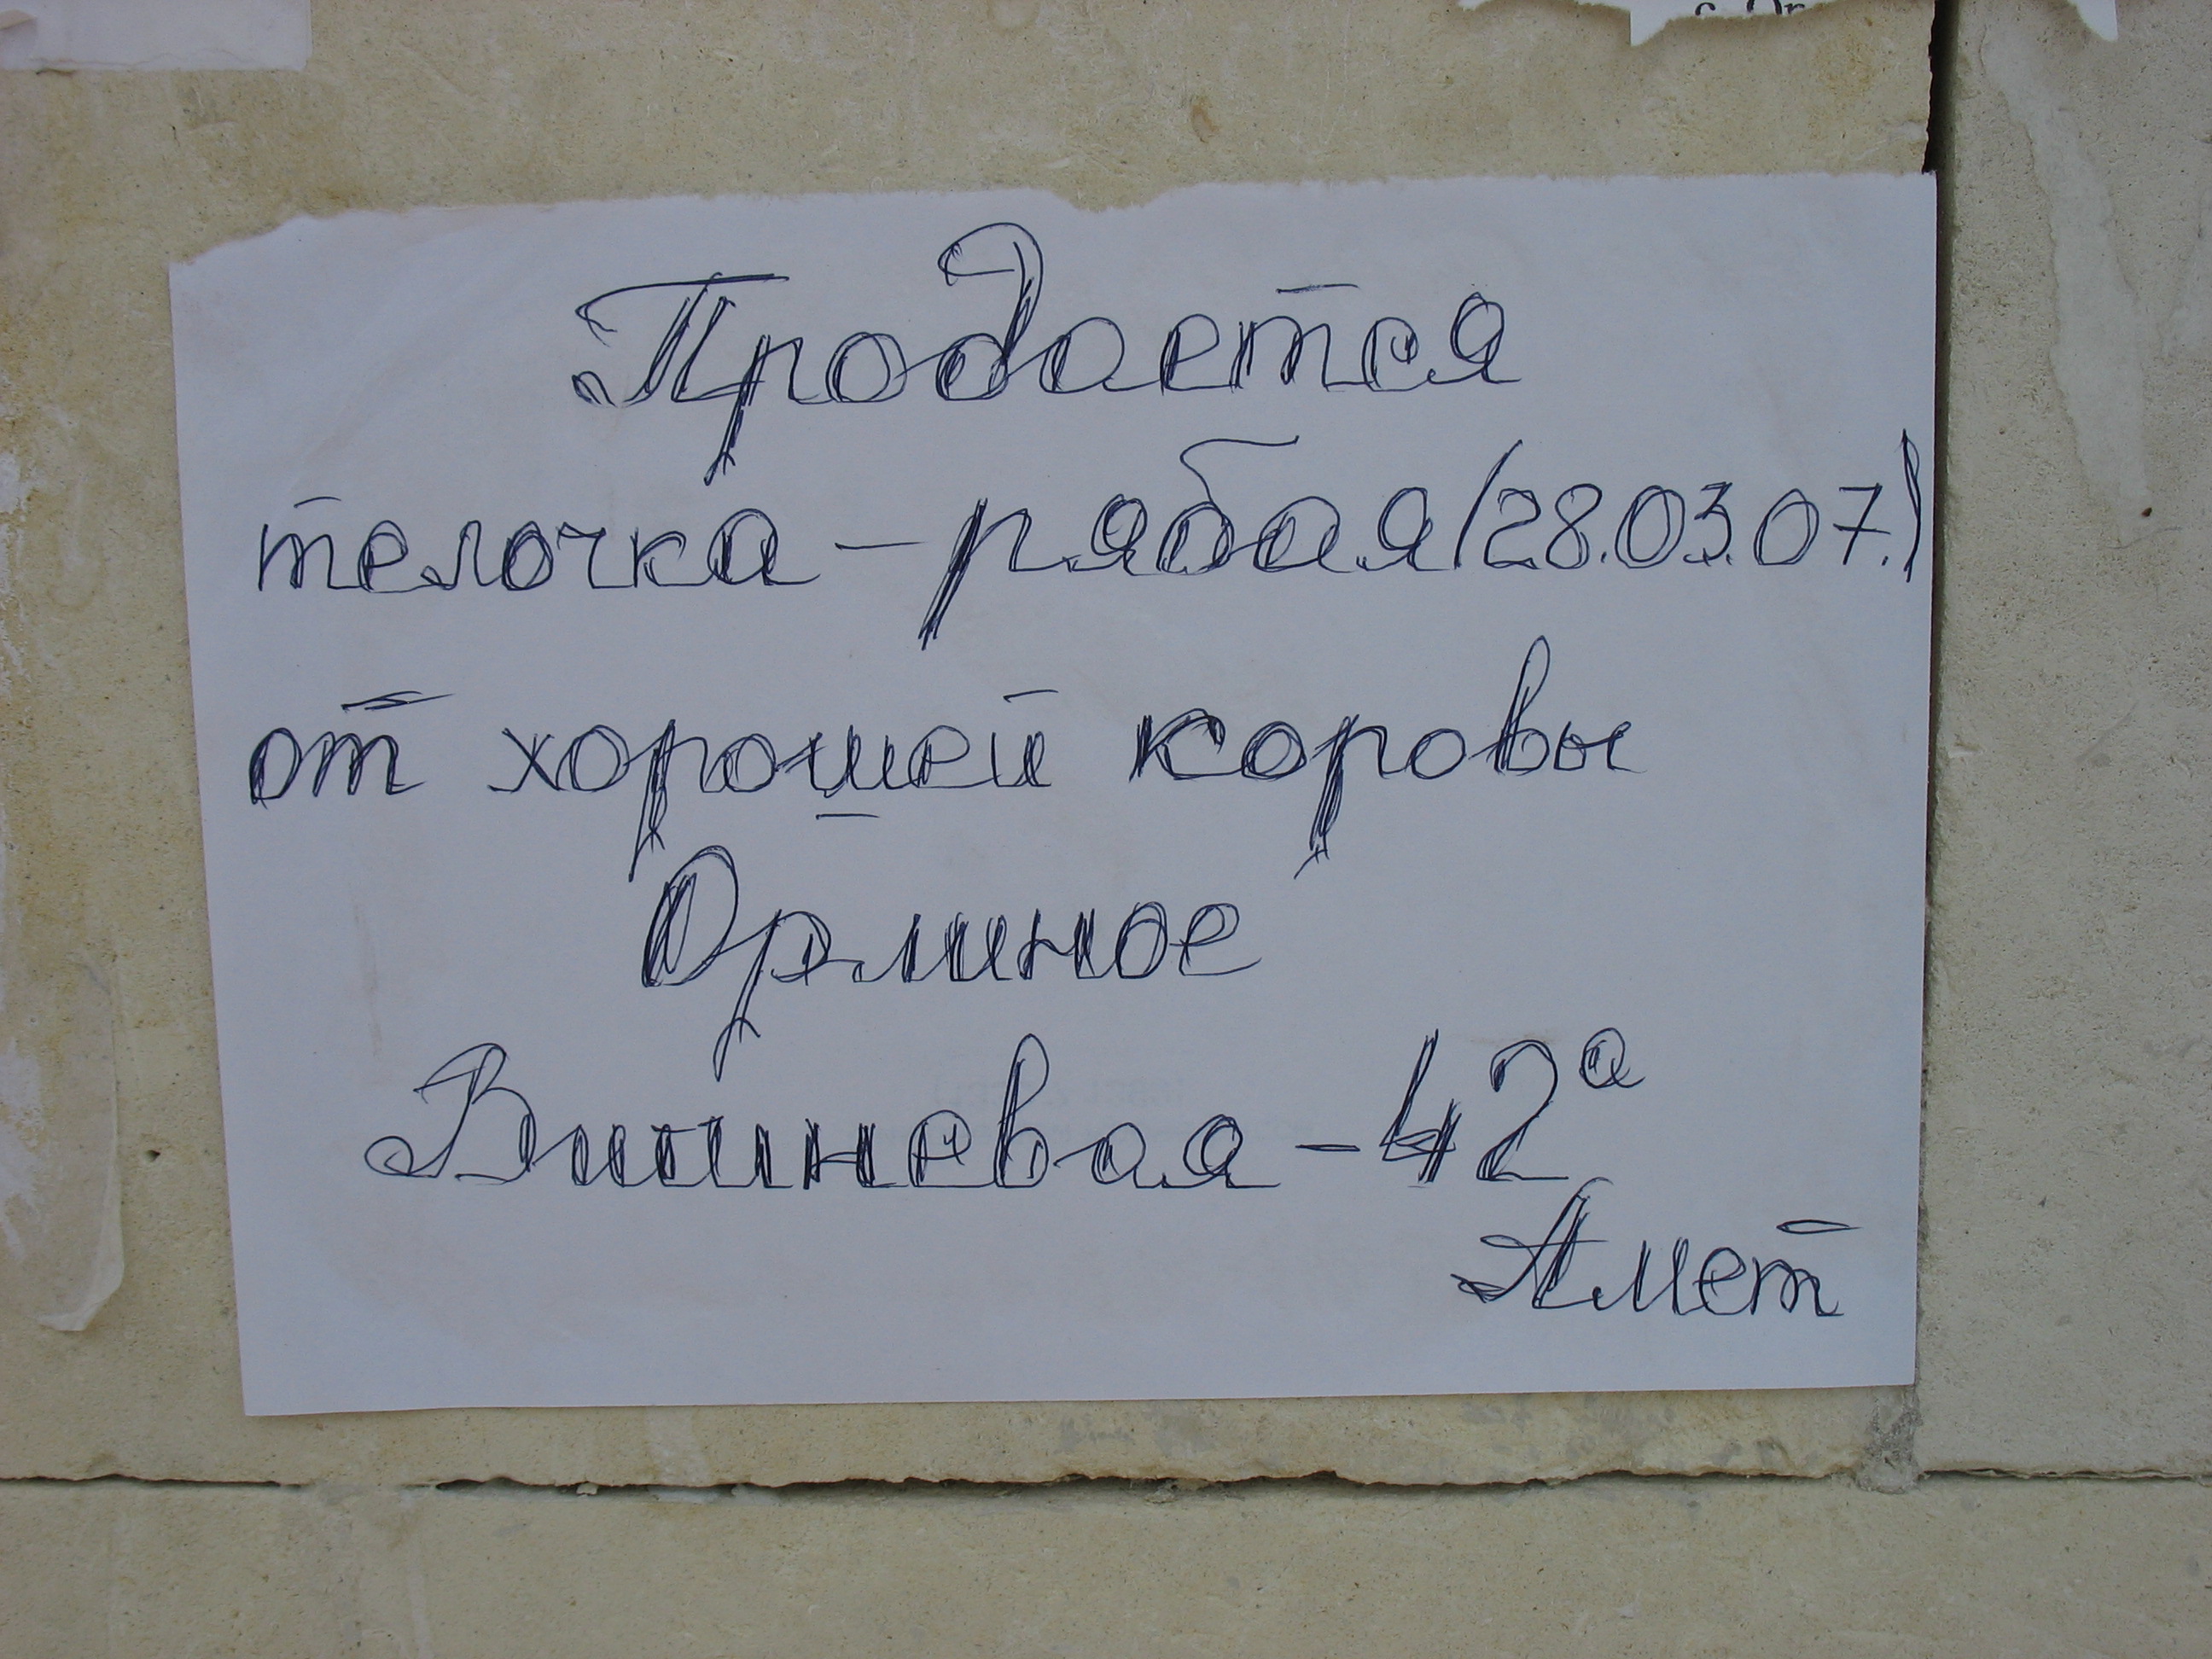 Продается
телочка - рябая (28.03.07.)
от хорошей коровы
Орлиное
Вишневая - 42а
Амет